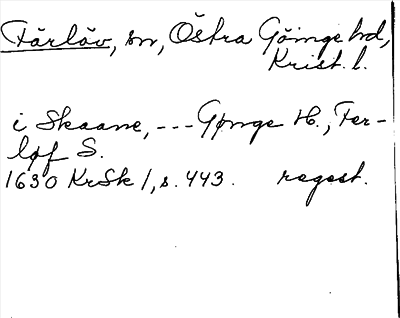 Färlöv, sn, Östra Göinge hd,
Krist. l.
i Skaane, --- Gønge H., Fer-
løf S.
1630 KrSk 1, s. 443. regest.